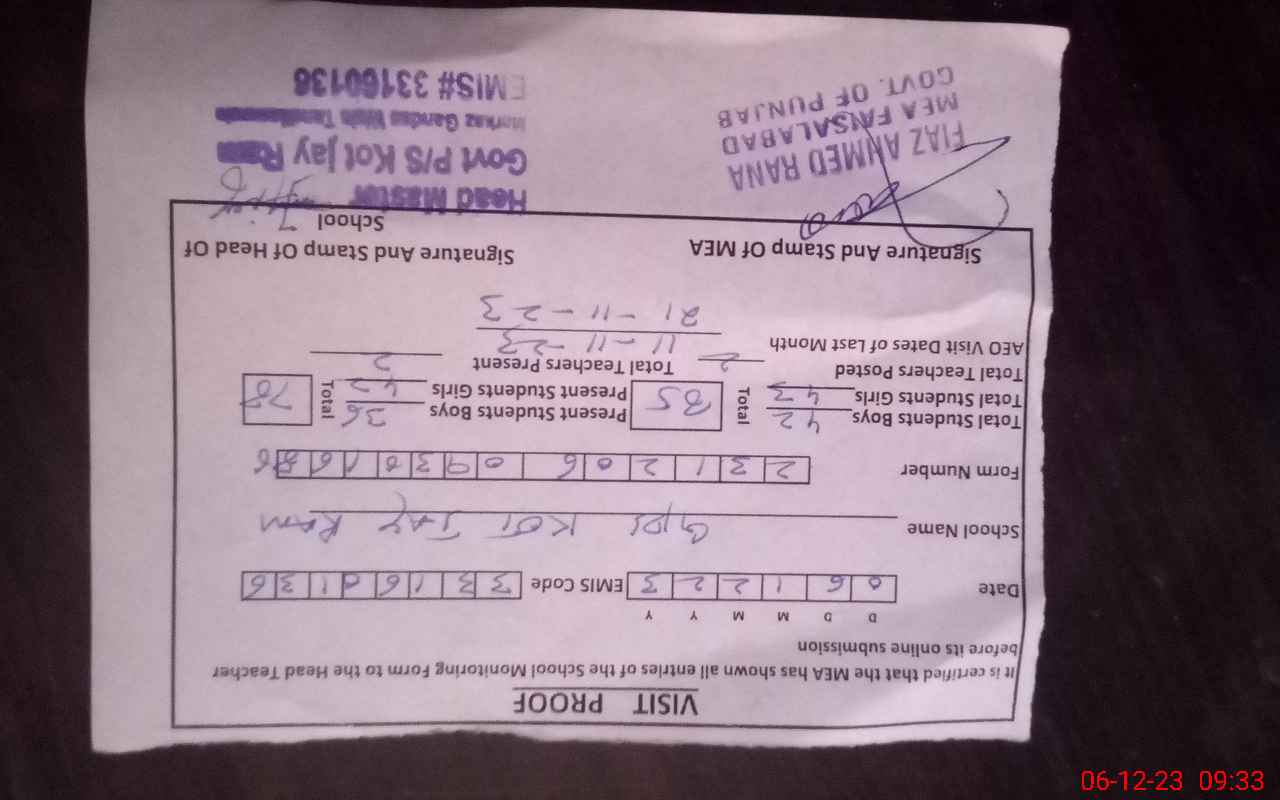 VISIT PROOF
It is certified that the MEA has shown all entries of the School Monitoring Form to the Head Teacher
before its online submission
D D M M Y Y
Date 0 6 1 2 2 3 EMIS Code 3 3 1 6 0 1 3 6
School Name GPS KOT JAY RAM
Form Number 2 3 1 2 0 6 0 9 3 0 1 6
Total Students Boys 42 Total 85 Present Students Boys 36 Total 78
Total Students Girls 43 Present Students Girls 42
Total Teachers Posted 2 Total Teachers Present 2
AEO Visit Dates of Last Month 11-11-23
21-11-23
Signature And Stamp Of MEA Signature And Stamp Of Head Of
School
FIAZ AHMED RANA
MEA FAISALABAD
GOVT. OF PUNJAB
Head Master
Govt P/S Kot Jay Ram
Markaz Gandas
EMIS# 33160136
06-12-23 09:33